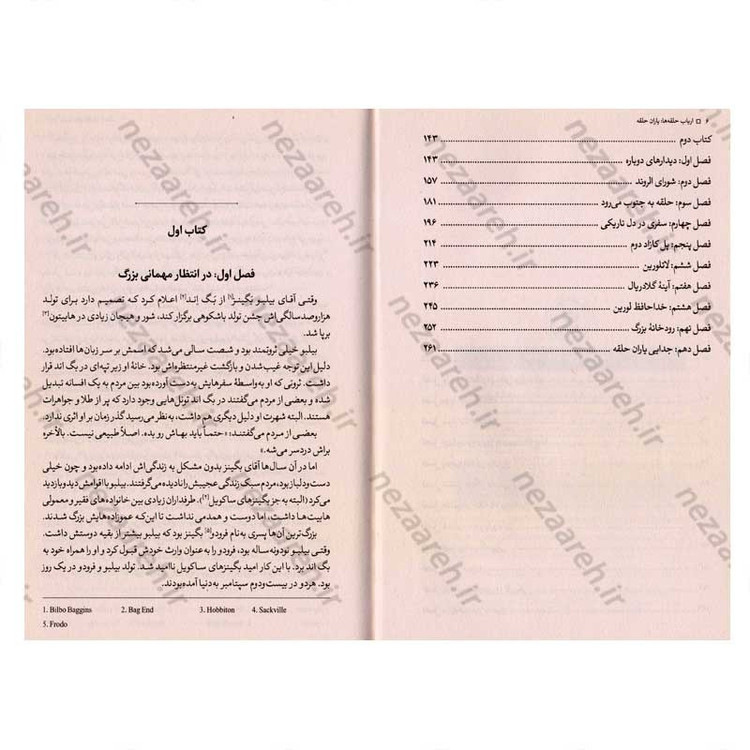 ۶ □ ارباب حلقه‌ها: یاران حلقه
کتاب دوم ........ ۱۴۳
فصل اول: دیدارهای دوباره ........ ۱۴۳
فصل دوم: شورای الروند ........ ۱۵۷
فصل سوم: حلقه به جنوب می‌رود ........ ۱۸۱
فصل چهارم: سفری در دل تاریکی ........ ۱۹۶
فصل پنجم: پل کازاد دوم ........ ۲۱۴
فصل ششم: لاتلورین ........ ۲۲۳
فصل هفتم: آینهٔ گلادریال ........ ۲۳۶
فصل هشتم: خداحافظ لورین ........ ۲۴۵
فصل نهم: رودخانهٔ بزرگ ........ ۲۵۲
فصل دهم: جدایی یاران حلقه ........ ۲۶۱
کتاب اول
فصل اول: در انتظار مهمانی بزرگ
وقتی آقای بیلبو بگینز[۱] از بَگ اِند[۲] اعلام کرد که تصمیم دارد برای تولد
هزاروصدسالگی‌اش جشن تولد باشکوهی برگزار کند، شور و هیجان زیادی در هابیتون[۳]
برپا شد.
بیلبو خیلی ثروتمند بود و شصت سالی می‌شد که اسمش بر سر زبان‌ها افتاده‌بود.
دلیل این توجه غیب‌شدن و بازگشت غیرمنتظره‌اش بود. خانهٔ او زیر تپه‌ای در بگ اند قرار
داشت. ثروتی که او به‌واسطهٔ سفرهایش به‌دست آورده‌بود بین مردم به یک افسانه تبدیل
شده و بعضی از مردم می‌گفتند در بگ اند تونل‌هایی وجود دارد که پر از طلا و جواهرات
هستند. البته شهرت او دلیل دیگری هم داشت، به‌نظر می‌رسید گذر زمان بر او اثری ندارد.
بعضی از مردم می‌گفتند: «حتماً باید بهاش رو بده. اصلاً طبیعی نیست. بالأخره
براش دردسر می‌شه.»
اما در آن سال‌ها آقای بگینز بدون مشکل به زندگی‌اش ادامه داده‌بود و چون خیلی
دست‌ودلباز بود، مردم سبک زندگی عجیبش را نادیده می‌گرفتند. بیلبو با اقوامش دیدوبازدید
می‌کرد (البته به جز بگینزهای ساکویل[۴]). طرفداران زیادی بین خانواده‌های فقیر و معمولی
هابیت‌ها داشت، اما دوست و همدمی نداشت تا این‌که عموزاده‌هایش بزرگ شدند.
بزرگ‌ترین آن‌ها پسری به‌نام فرودو[۵] بگینز بود که بیلبو بیشتر از بقیه دوستش داشت.
وقتی بیلبو نودونه‌ساله بود، فرودو را به‌عنوان وارث خودش قبول کرد و او را همراه خود به
بگ اند برد. با این کار امید بگینزهای ساکویل ناامید شد. تولد بیلبو و فرودو در یک روز
بود. هردو در بیست‌ودوم سپتامبر به‌دنیا آمده‌بودند.
1. Bilbo Baggins 2. Bag End 3. Hobbiton 4. Sackville
5. Frodo
nezaareh.ir
nezaareh.ir
nezaareh.ir
nezaareh.ir
nezaareh.ir
nezaareh.ir
nezaareh.ir
nezaareh.ir
nezaareh.ir
nezaareh.ir